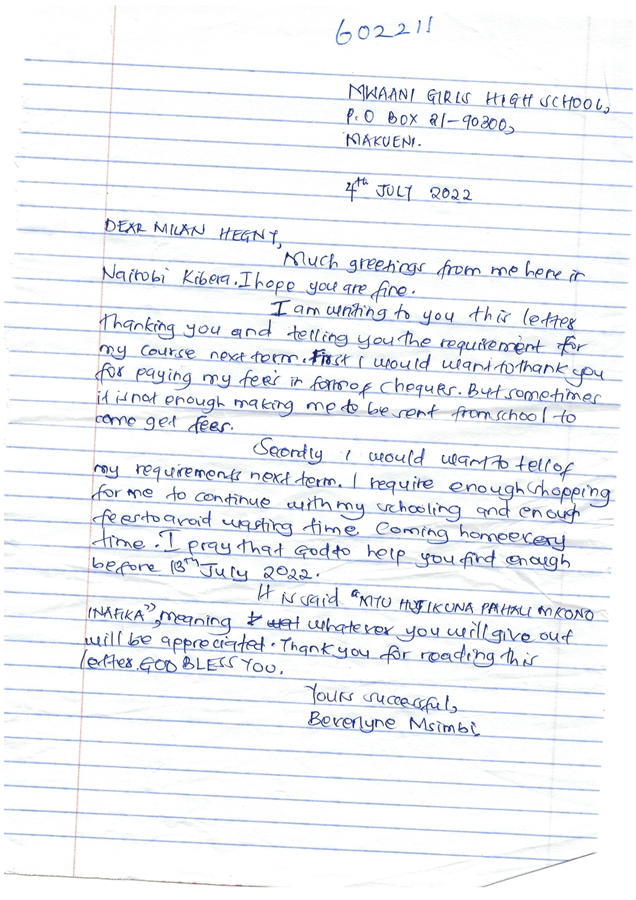 602211
MWAANI GIRLS HIGH SCHOOL,
P.O BOX 21-90300,
MAKUENI.
4th JULY 2022
DEAR MILAN HEGNY,
Much greetings from me here in
Nairobi Kibera. I hope you are fine.
I am writing to you this letter
thanking you and telling you the requirement for
my course next term. First I would want to thank you
for paying my fees in form of cheques. But sometimes
it is not enough making me to be sent from school to
come get fees.
Secondly I would want to tell of
my requirements next term. I require enough shopping
for me to continue with my schooling and enough
fees to avoid wasting time coming home every
time. I pray that God to help you find enough
before 13th July 2022.
It is said "MTU HUJIKUNA PAHALI MKONO
INAFIKA", meaning whatever you will give out
will be appreciated. Thank you for reading this
letter. GOD BLESS YOU.
Yours successful,
Beverlyne Msimbi